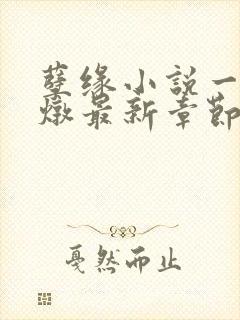 孽缘小説一
燉最新章節
戛然而止